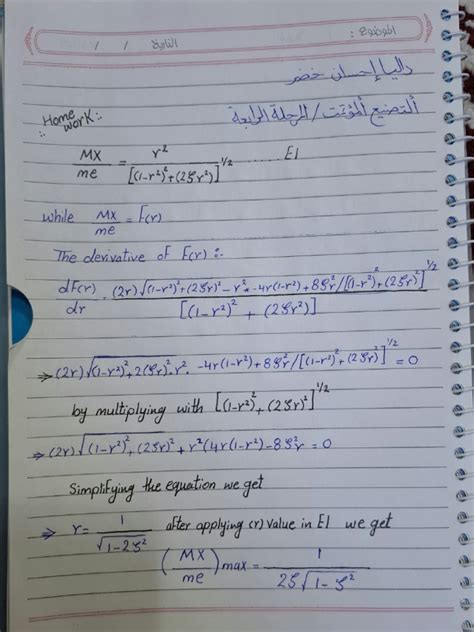 الموضوع :
التاريخ / /
داليا إحسان خضر
التصنيع المؤتمت / المرحلة الرابعة
Home
work :
MX/me = r²/[(1-r²)²+(2ζr²)]^1/2 ...... E1
while MX/me = F(r)
The derivative of F(r) :-
dF(r)/dr = (2r)√(1-r²)²+(2ζr)² - r² * -4r(1-r²)+8ζ²r/[(1-r²)²+(2ζr)²]^1/2 / [(1-r²)² + (2ζr)²]
⇒ (2r)√(1-r²)²+2(ζr)² - r² . -4r(1-r²)+8ζ²r/[(1-r²)²+(2ζr)²]^1/2 = 0
by multiplying with [(1-r²)²+(2ζr)²]^1/2
⇒ (2r)√(1-r²)²+(2ζr)² + r²(4r(1-r²)-8ζ²r = 0
Simplifying the equation we get
⇒ r = 1/√1-2ζ² after applying (r) value in E1 we get
(MX/me) max = 1/2ζ√1-ζ²